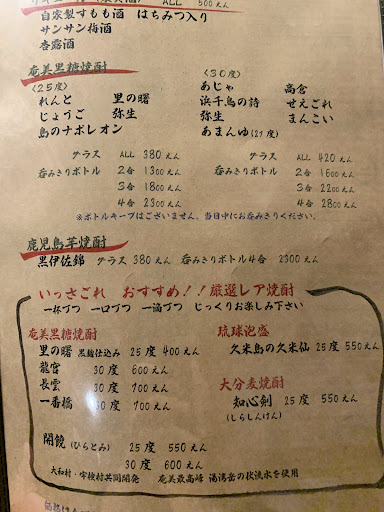 ALL 500えん
自家製すもも酒 はちみつ入り
サンサン梅酒
杏露酒
奄美黒糖焼酎
〈25度〉
れんと 里の曙
じょうご 弥生
島のナポレオン
〈30度〉
あじゃ 高倉
浜千鳥の詩 せえごれ
弥生 まんこい
あまんゆ(27度)
グラス ALL 380えん
呑みきりボトル 2合 1300えん
3合 1800えん
4合 2300えん
グラス ALL 420えん
呑みきりボトル 2合 1600えん
3合 2200えん
4合 2800えん
※ボトルキープはございません。当日中にお呑みきりください。
鹿児島芋焼酎
黒伊佐錦 グラス 380えん 呑みきりボトル4合 2300えん
いっさごれ おすすめ!!厳選レア焼酎
一杯づつ 一口づつ 一滴づつ じっくりお楽しみ下さい
奄美黒糖焼酎
里の曙 黒麹仕込み 25度 400えん
龍宮 30度 600えん
長雲 30度 700えん
一番橋 30度 700えん
開饒(ひらとみ) 25度 550えん
30度 600えん
大和村・宇検村共同開発 奄美最高峰 湯湾岳の伏流水を使用
琉球泡盛
久米島の久米仙 25度 550えん
大分麦焼酎
知心剣 25度 550えん
(しらしんけん)